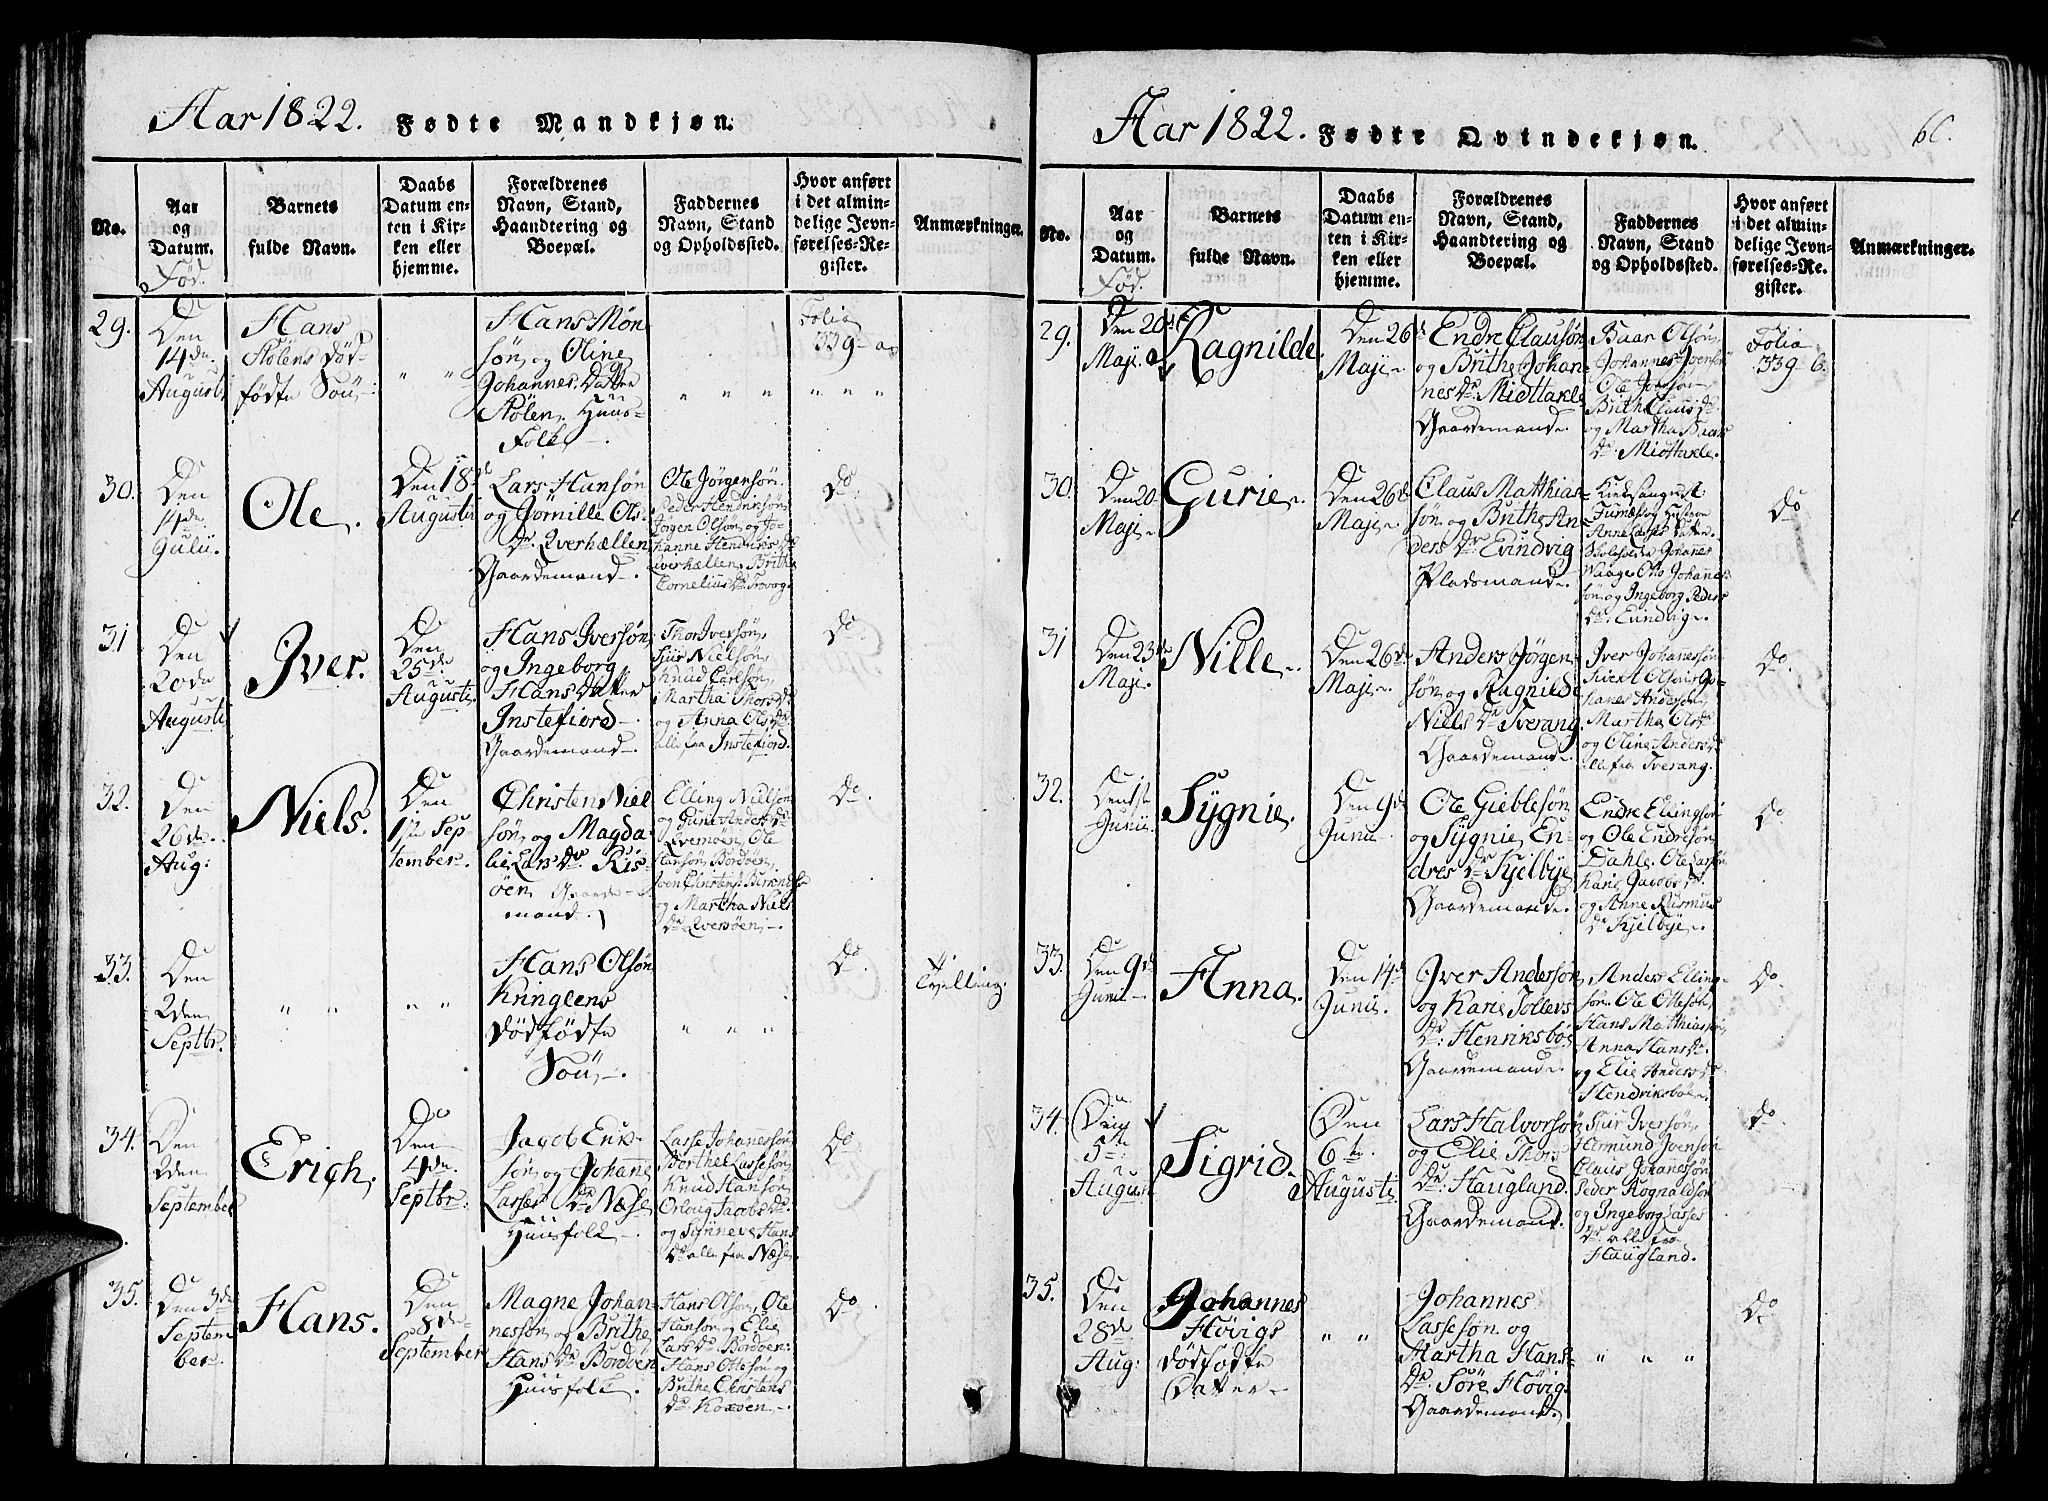 Aar 1822. Fødte Mandkjøn.
No.
Aar
og
Datum.
Fød.
Barnets
fulde Navn.
Daabs
Datum en-
ten i Kir-
ken eller
hjemme.
Forældrenes
Navn, Stand,
Haandtering og
Boepæl.
Faddernes
Navn, Stand
og Opholdssted.
Hvor anført
i det almin-
delige Jevn-
førelses-Re-
gister.
Anmærkninger.
29.
Den
14de
Augusti
Hans
Stølens død-
födte Søn,
" "
Hans Møn
søn, og Oline
Johannes Datter
Stølen, Huus-
Folk.
" " "
Folio
339. a
" " "
30.
Den
14de
Julii.
Ole.
Den 18d
Augusti
Lars Hansøn
og Jørnille Ols
Dr. Qverhællen
Gaardemand.
Ole Jørgensøn.
Peder Hendriksøn,
Jørgen Olsøn, og Jo-
hanne Hendriks Dr
Qverhællen, Brithe
Cornelius Dr. Trovog.
Do
31
Den
20de
Augusti
Iver.
Den
25de
Augusti,
Hans Iversøn
og Ingeborg
Hans Datter
Instefiord
Gaardemand.
Thor Iversøn,
Siur Nielsøn,
Knud Carlsøn,
Martha Thors Dr
og Anna Ols Dr
alle fra Instefjord.
Do
32.
Den
26de
Aug:
Niels.
Den
1ste Sep
tember.
Christen Niel
søn, og Magda
lie Lars Dr. Ris-
öen Gaarde-
mand.
Elling Nielsøn
og Anders Dr
Qvernøen, Ole
Hansøn, Bordöen,
og Martha Niels
Dr. Qversöen,
Do.
33.
Den
2den
Septbr.
" "
" "
Hans Olsøn
Kringlens
dödfödte
Søn,
" " "
Do.
Tvilling.
34.
Den
2den
September
Erich,
Den
4de
Septbr:
Jacob Erik-
søn, og Johanne
Lasses Dr. Næse
Huusfolk.
Lasse Johannessøn
Borthel Lassesøn,
Knud Hansøn,
Orloug Jacobs Dr.
og Synneve Hans
Dr. alle fra Næse.
Do
35.
Den 3de
Septem
ber.
Hans.
Den
8de
September
Magne Johan-
nessøn, og Brithe
Hans Dr. Bordöen
Huusfolk.
Hans Olsøn, Ole
Hansøn, og Elie
Lars Dr. Bordöen:
Hans Ottesøn og
Brithe Christens
Dr. Koxöen.
Do
Aar 1822. Fødte Qvindekjøn.
60.
No.
Aar
og
Datum.
Fød.
Barnets
fulde Navn.
Daabs
Datum en-
ten i Kir-
ken eller
hjemme.
Forældrenes
Navn, Stand,
Haandtering og
Boepæl.
Faddernes
Navn, Stand
og Opholdssted.
Hvor anført
i det almin-
delige Jevn-
førelses-Re-
gister.
Anmærkninger.
29.
Den 20de
Maji.
Ragnilde.
Den 26d
Maji.
Endre Clausøn
og Brithe Johan-
nes Dr. Miøttakle
Gaardemand.
Baar Olsøn,
Johannes Joensøn
Ole Jonsøn
Brith Claus Dr.
og Martha Baars
Dr. Miøttakle.
Folio
339 b.
30.
Den 20
Maji.
Gurie.
Den 26de
Maji.
Claus Matthias-
søn, og Brithe An-
ders Dr. Evindvig
Pladsmand.
Anne Lasses Datter
Skoleholder Johanes
Waage, Otto Johannes-
søn, og Ingeborg Peders
Dr. Eundvig.
Do
31
Den 23de
Maji.
Nille.
Den 26de
Maji.
Anders Jørgen-
søn, og Ragnilde
Niels Dr. Tverang
Gaardemand.
Iver Johanessøn
Siur Olsøn, Jo-
hanes Andersøn,
Martha Ols Dr
og Oline Anders Dr
alle fra Tverang.
Do.
32.
Den 1ste
Junii.
Sygnie.
Den 9de
Junii
Ole Gieblesøn
og Sygnie En-
dres Dr. Kjelbye
Gaardemand.
Endre Ellingsøn
og Ole Endresøn,
Dahle, Ole Larsøn
Karie Jacobs Dr.
og Anne Rasmus
Dr. Kjelbye.
Do
33.
Den 9de
Junii.
Anna.
Den 14de
Junii.
Iver Andersøn
og Karie Tollevs
Dr: Henriksbøe
Gaardemand.
Anders Elling-
søn, Ole Ottesøn,
Hans Matthiassøn,
Anna Hans Dr.
og Elie Anders Dr
Hendriksbøe.
Do.
34.
Den
5te
August
Sigrid.
Den
6te.
Augusti
Lars Halvorsøn
og Elie Thors
Dr: Haugland.
Gaardemand.
Siur Iversøn,
Hermund Joensøn
Claus Johanessøn,
Peder Rognaldsøn
og Ingeborg Lasses
Dr. alle fra
Haugland.
Do
35.
Den
28de
Aug:
Johannes
Høvigs
dödfödte
Datter
" "
Johannes
Lassesøn og
Martha Hans-
Dr. Söre Høvig
Gaardemand.
" " "
Do